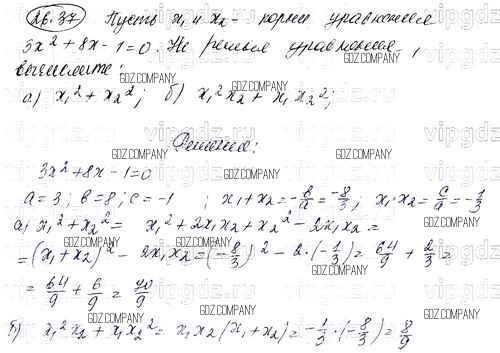 26.37 Пусть x₁ и x₂ - корни уравнения
3x² + 8x - 1 = 0. Не решая уравнения,
вычислите:
а) x₁² + x₂²; б) x₁²x₂ + x₁x₂²;
Решение:
3x² + 8x - 1 = 0
a = 3; b = 8; c = -1; x₁ + x₂ = -b/a = -8/3; x₁·x₂ = c/a = -1/3
а) x₁² + x₂² = x₁² + 2x₁x₂ + x₂² - 2x₁x₂ =
= (x₁ + x₂)² - 2x₁x₂ = (-8/3)² - 2·(-1/3) = 64/9 + 2/3 =
= 64/9 + 6/9 = 70/9
б) x₁²x₂ + x₁x₂² = x₁x₂(x₁ + x₂) = -1/3·(-8/3) = 8/9
GDZ.COMPANY
vipgdz.com